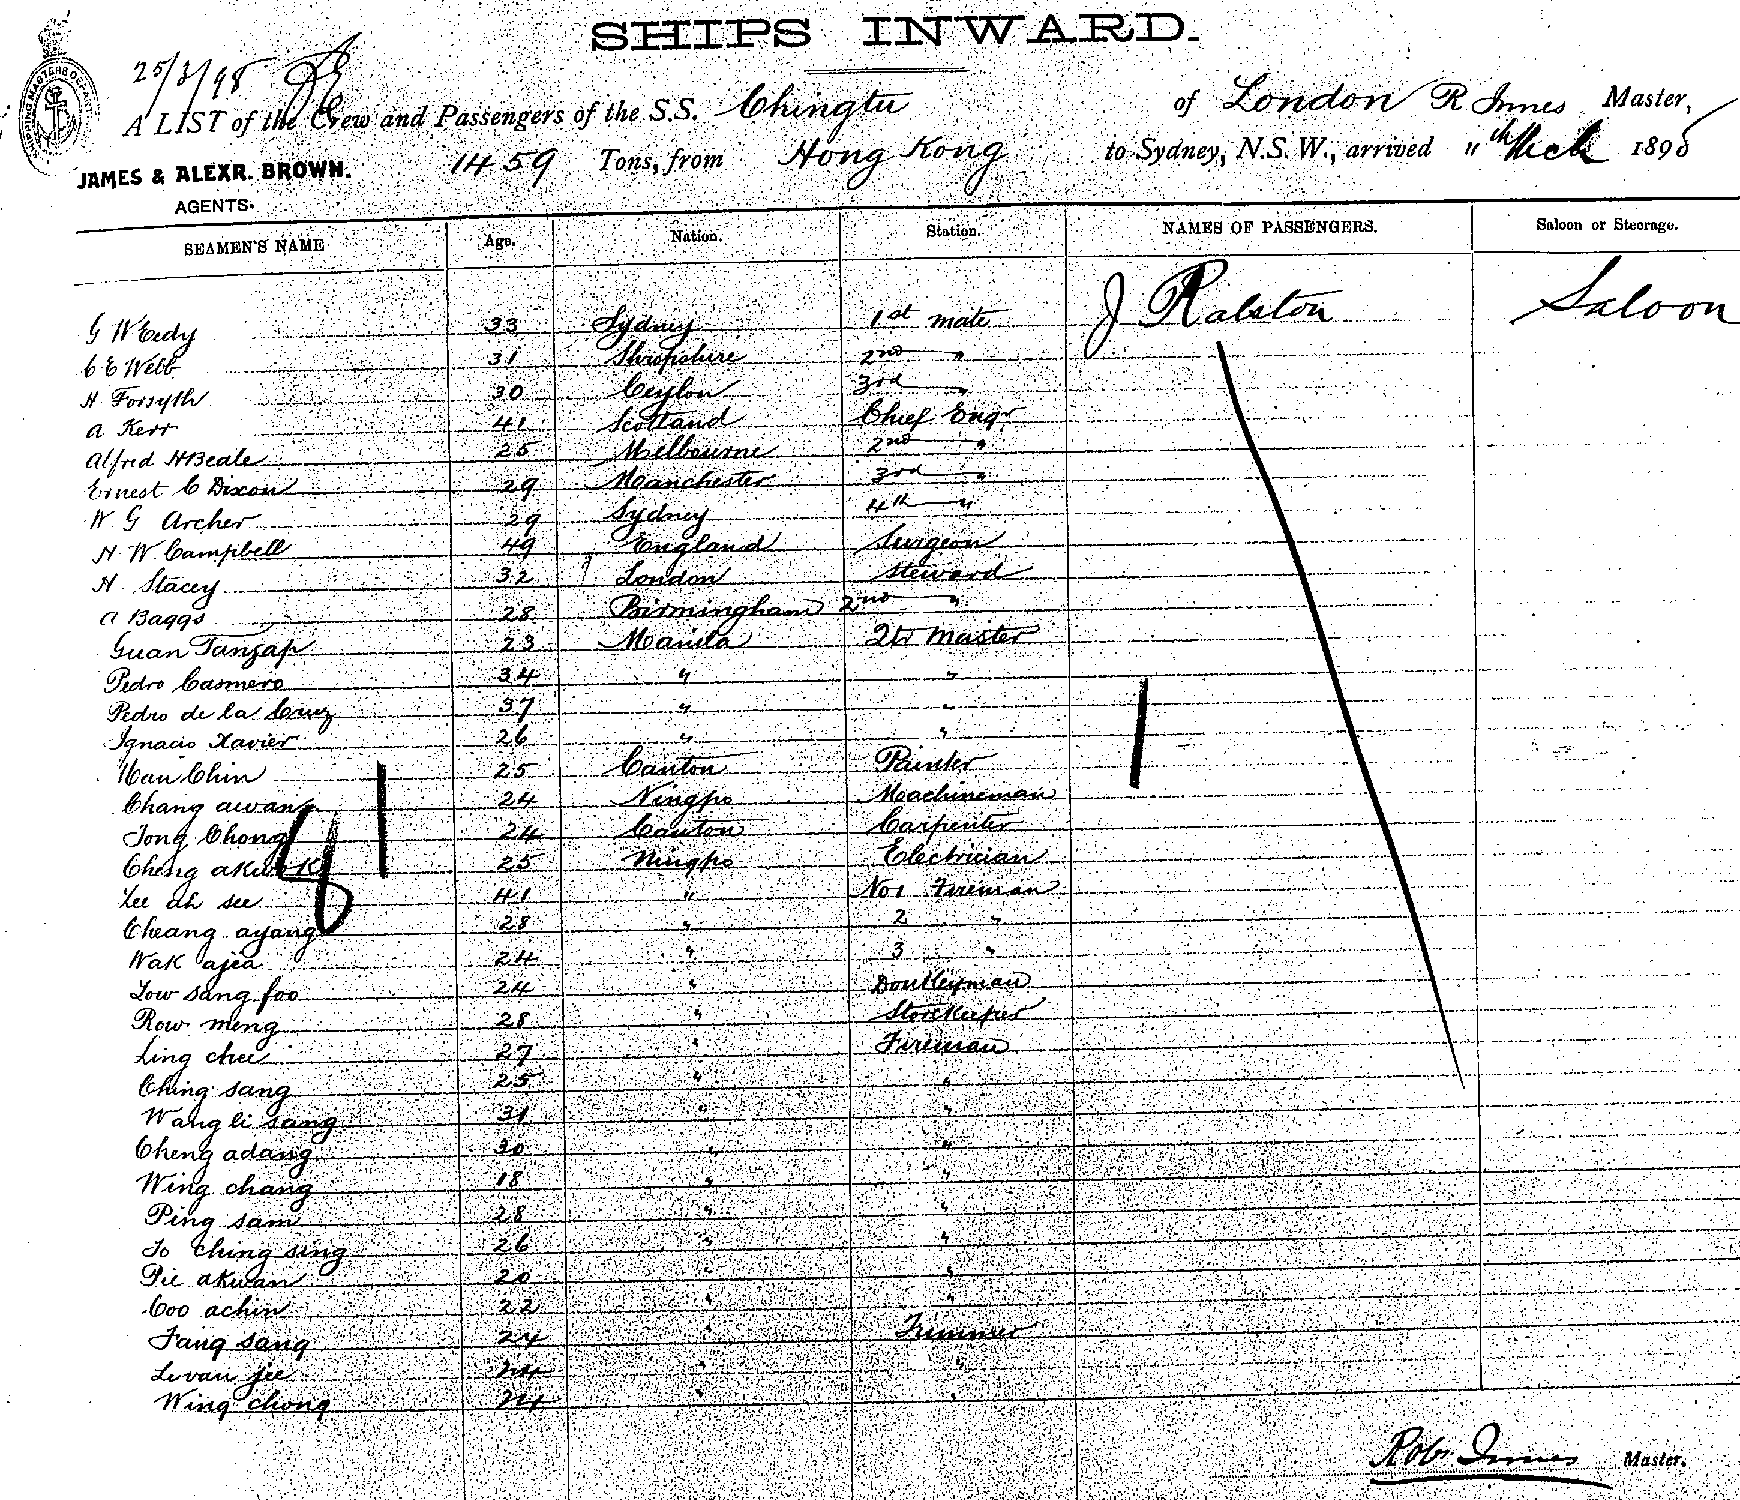 SHIPS INWARD.
25/3/98
A LIST of the Crew and Passengers of the S.S. Chingtu of London R Innes Master,
JAMES & ALEXR. BROWN. 1459 Tons, from Hong Kong to Sydney, N.S.W., arrived 11th March 1898
AGENTS.
SEAMEN'S NAME Age. Nation. Station. NAMES OF PASSENGERS. Saloon or Steerage.
G W Eedy 33 Sydney 1st mate J Ralston Saloon
C E Webb 31 Shropshire 2nd "
H Forsyth 30 Ceylon 3rd "
A Kerr 41 Scotland Chief Engr
Alfred H Beale 25 Melbourne 2nd "
Ernest C Dixon 29 Manchester 3rd "
W G Archer 29 Sydney 4th "
H W Campbell 49 England Surgeon
H Stacey 32 London Steward
A Baggs 28 Birmingham 2nd "
Guan Tanzap 23 Manila Qtr Master
Pedro Casmero 34 " "
Pedro de la Cruz 37 " "
Ignacio Xavier 26 " "
Han Chin 25 Canton Painter
Chang awang 24 Ningpo Machineman
Tong Chong 24 Canton Carpenter
Cheng 25 Ningpo Electrician
Lee ah see 41 " No 1 Fireman
Cheang ayang 28 " 2 "
Wak ajea 24 " 3 "
Low sang foo 24 " Donkeyman
Row meng 28 " Storekeeper
Ling chee 27 " Fireman
Ching sang 25 " "
Wang li sang 31 " "
Cheng adang 30 " "
Wing chang 18 " "
Ping sam 28 " "
To ching sing 26 " "
Pie akwan 20 " "
Coo achin 22 " "
Fang sang 24 " Trimmer
Levan jee 24 " "
Wing chong 24 " "
41
1
Robt Innes Master.